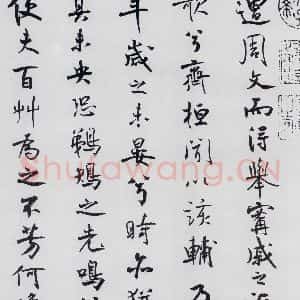 遭周文而得舉甯戚之
歌兮齊桓聞以該輔及
年歲之未晏兮時亦猶
其未央恐鵜鴂之先鳴
使夫百艸為之不芳何
Shufawang.CN